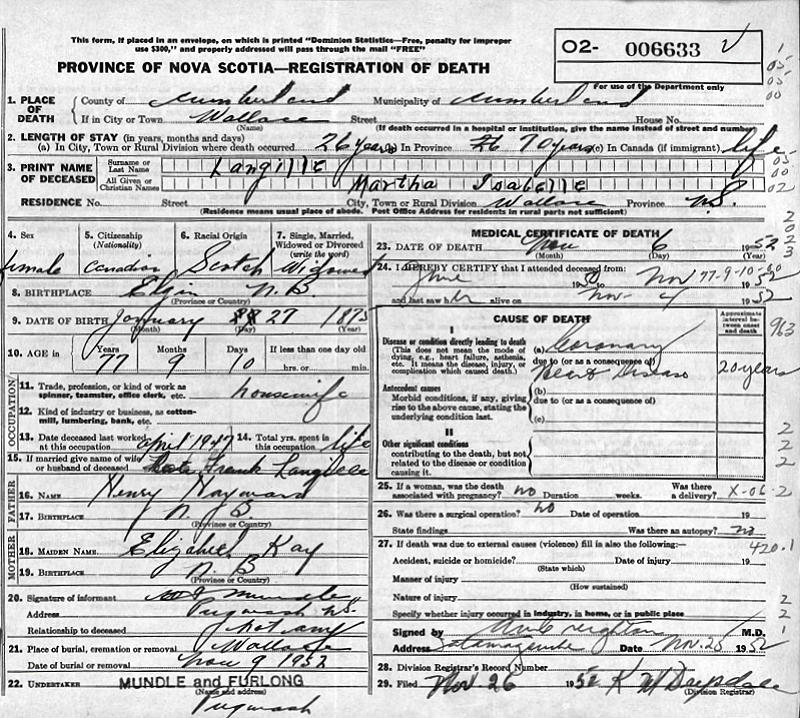 This form, if placed in an envelope, on which is printed "Dominion Statistics—Free, penalty for improper
use $300," and properly addressed will pass through the mail "FREE"
O2- 006633
For use of the Department only
PROVINCE OF NOVA SCOTIA—REGISTRATION OF DEATH
1. PLACE OF DEATH County of Cumberland Municipality of Cumberland
If in City or Town Wallace Street House No.
(Name) (If death occurred in a hospital or institution, give the name instead of street and number)
2. LENGTH OF STAY (in years, months and days)
(a) In City, Town or Rural Division where death occurred 26 years In Province 70 years (c) In Canada (if immigrant) life
3. PRINT NAME OF DECEASED Surname or Last Name Langille
All Given or Christian Names Martha Isabelle
RESIDENCE No. Street City, Town or Rural Division Wallace Province N.S.
(Residence means usual place of abode. Post Office Address for residents in rural parts not sufficient)
4. Sex 5. Citizenship (Nationality) 6. Racial Origin 7. Single, Married, Widowed or Divorced (write the word)
Female Canadian Scotch Widowed
8. BIRTHPLACE Elgin N.B.
(Province or Country)
9. DATE OF BIRTH January 27 1875
(Month) (Day) (Year)
10. AGE in Years Months Days If less than one day old
77 9 10 hrs. or min.
OCCUPATION
11. Trade, profession, or kind of work as spinner, teamster, office clerk, etc. housewife
12. Kind of industry or business, as cotton-mill, lumbering, bank, etc.
13. Date deceased last worked at this occupation April 1947 14. Total yrs. spent in this occupation life
15. If married give name of wife or husband of deceased Late Frank Langille
FATHER
16. Name Henry Hayward
17. Birthplace N B
(Province or Country)
MOTHER
18. Maiden Name Elizabeth Kay
19. Birthplace N. B
(Province or Country)
20. Signature of informant Mundle
Address Pugwash NS.
Relationship to deceased not any
21. Place of burial, cremation or removal Wallace
Date of burial or removal Nov 9 1952
22. Undertaker MUNDLE and FURLONG
(Name and address)
Pugwash
MEDICAL CERTIFICATE OF DEATH
23. DATE OF DEATH Nov 6 1952
(Month) (Day) (Year)
24. I HEREBY CERTIFY that I attended deceased from:
June 1950 to Nov 1952
77-9-10-20
and last saw her alive on Nov- 4 1952
CAUSE OF DEATH
Approximate interval between onset and death
I
Disease or condition directly leading to death
(This does not mean the mode of dying, e.g., heart failure, asthenia, etc. It means the disease, injury, or complication which caused death.)
(a) Coronary
due to (or as a consequence of)
Heart Disease 20 years
Antecedent causes
Morbid conditions, if any, giving rise to the above cause, stating the underlying condition last.
(b)
due to (or as a consequence of)
(c)
II
Other significant conditions
contributing to the death, but not related to the disease or condition causing it.
25. If a woman, was the death associated with pregnancy? no Duration weeks. Was there a delivery? X-06-2
26. Was there a surgical operation? no Date of operation 19
State findings Was there an autopsy? no
27. If death was due to external causes (violence) fill in also the following:— 420.1
Accident, suicide or homicide? Date of injury 19
(State which)
Manner of injury
(How sustained)
Nature of injury
Specify whether injury occurred in industry, in home, or in public place
Signed by Creighton M.D.
Address Tatamagouche Date Nov. 25 1952
28. Division Registrar's Record Number
29. Filed Nov. 26 1952 K M Drysdale
(Division Registrar)
1
05-
05-
00
05
03
02
2
0
2
3
963
2
2
2
2
2
1
2